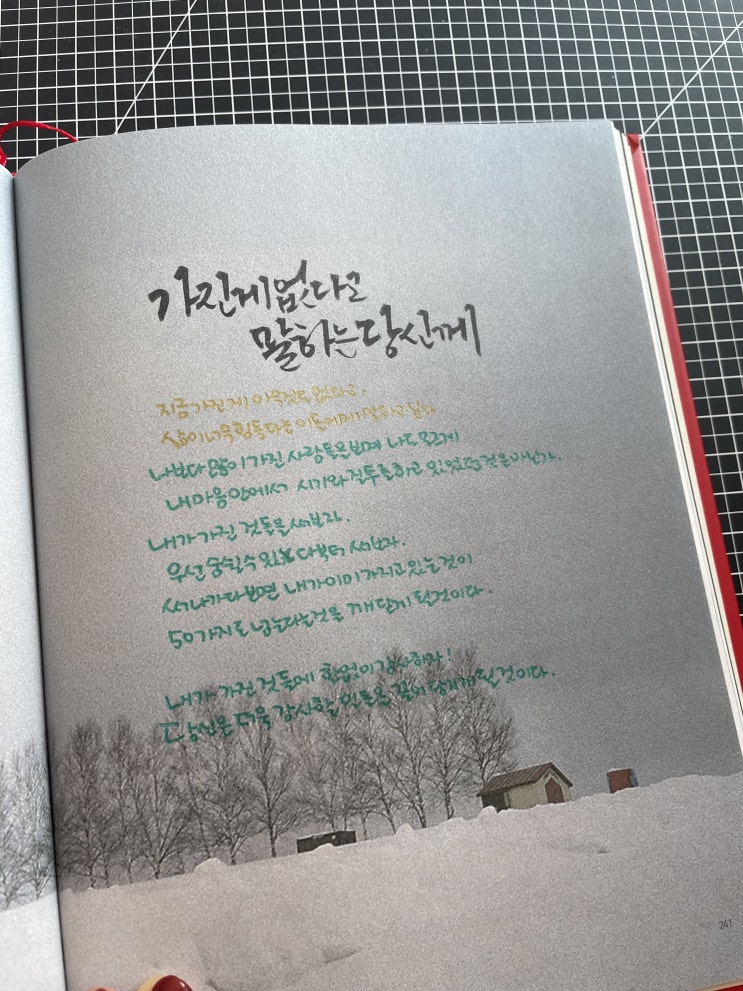 가진게 없다고
말하는 당신께
지금 가진게 아무것도 없다고,
삶이 너무 힘들다는 이들에게 말하고 싶다
나보다 많이 가진 사람들을 보며 나도 모르게
내 마음 안에서 시기와 질투를 하고 있었던 것은 아닌가.
내가 가진 것들을 써보라.
우선 숨쉴 수 있다부터 써보자.
써나가다보면 내가 이미 가지고 있는 것이
50가지도 넘는다는 것을 깨닫게 될것이다.
내가 가진 것들에 한없이 감사하자!
당신은 더욱 감사할 일들을 끌어당기게 될것이다.
241